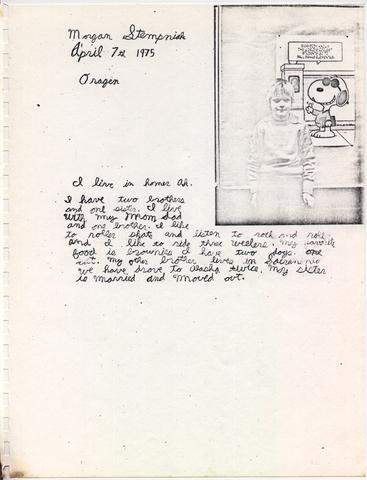 Morgan Stempniak
April 7st 1975
Oragen
I live in homer Ak.
I have two brothers
and one sister. I live
with my Mom Dad
and one brother. I like
to roller skate and listen to rock and roll,
and I like to ride three wealers. my favorite
food is brownies I have two dogs. one
cat. my other brother lives in
we have drove to Alaska twice. my sister
is married and moved out.